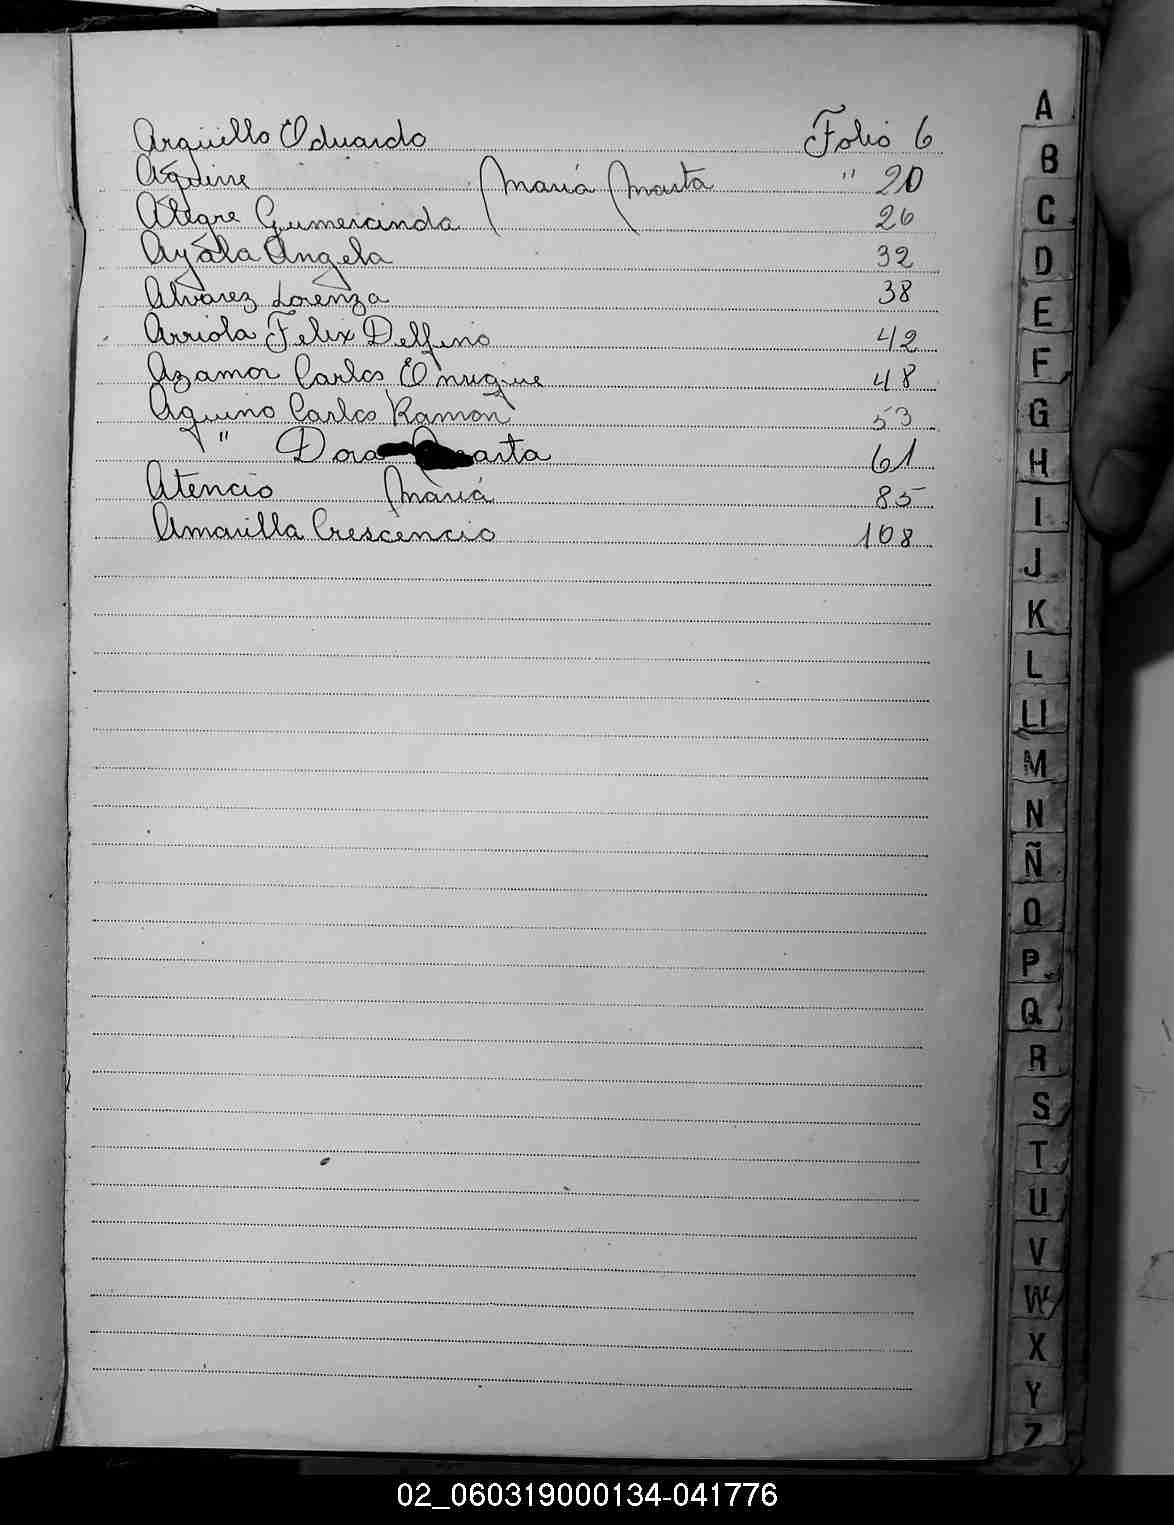 Argüello Eduardo Folio 6
Aguirre María Marta " 20
Alegre Gumercinda 26
Ayala Angela 32
Alvarez Lorenza 38
Arriola Felix Delfino 42
Azamor Carlos Enrique 48
Aquino Carlos Ramón 53
" Dora Marta 61
Atencio María 85
Amarilla Crescencio 108
A
B
C
D
E
F
G
H
I
J
K
L
Ll
M
N
Ñ
O
P
Q
R
S
T
U
V
W
X
Y
Z
02_060319000134-041776